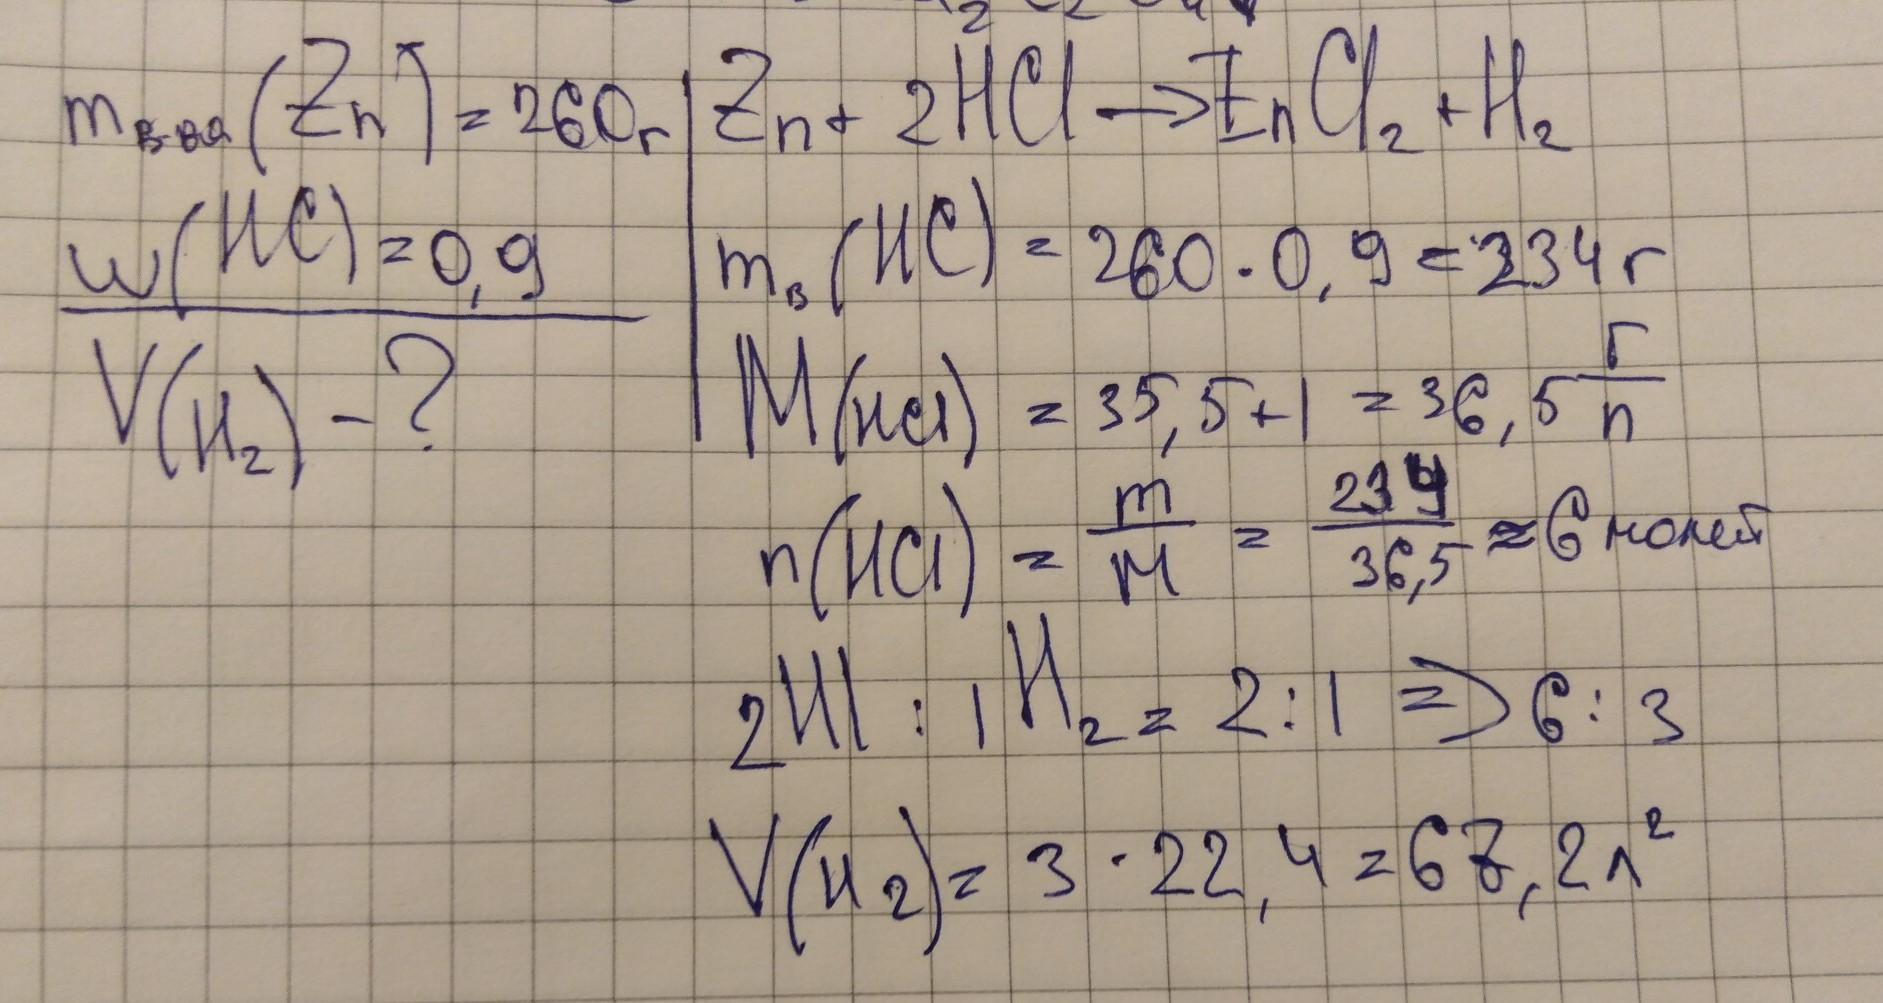 m в-ва (Zn) = 260г
w(HC) = 0,9
V(H₂) - ?
Zn + 2HCl → ZnCl₂ + H₂
mв(HC) = 260 · 0,9 = 234 г
M(HCl) = 35,5 + 1 = 36,5 г/n
n(HCl) = m/M = 234/36,5 ≈ 6 молей
2HCl : 1H₂ = 2 : 1 => 6 : 3
V(H₂) = 3 · 22,4 = 67,2 л²